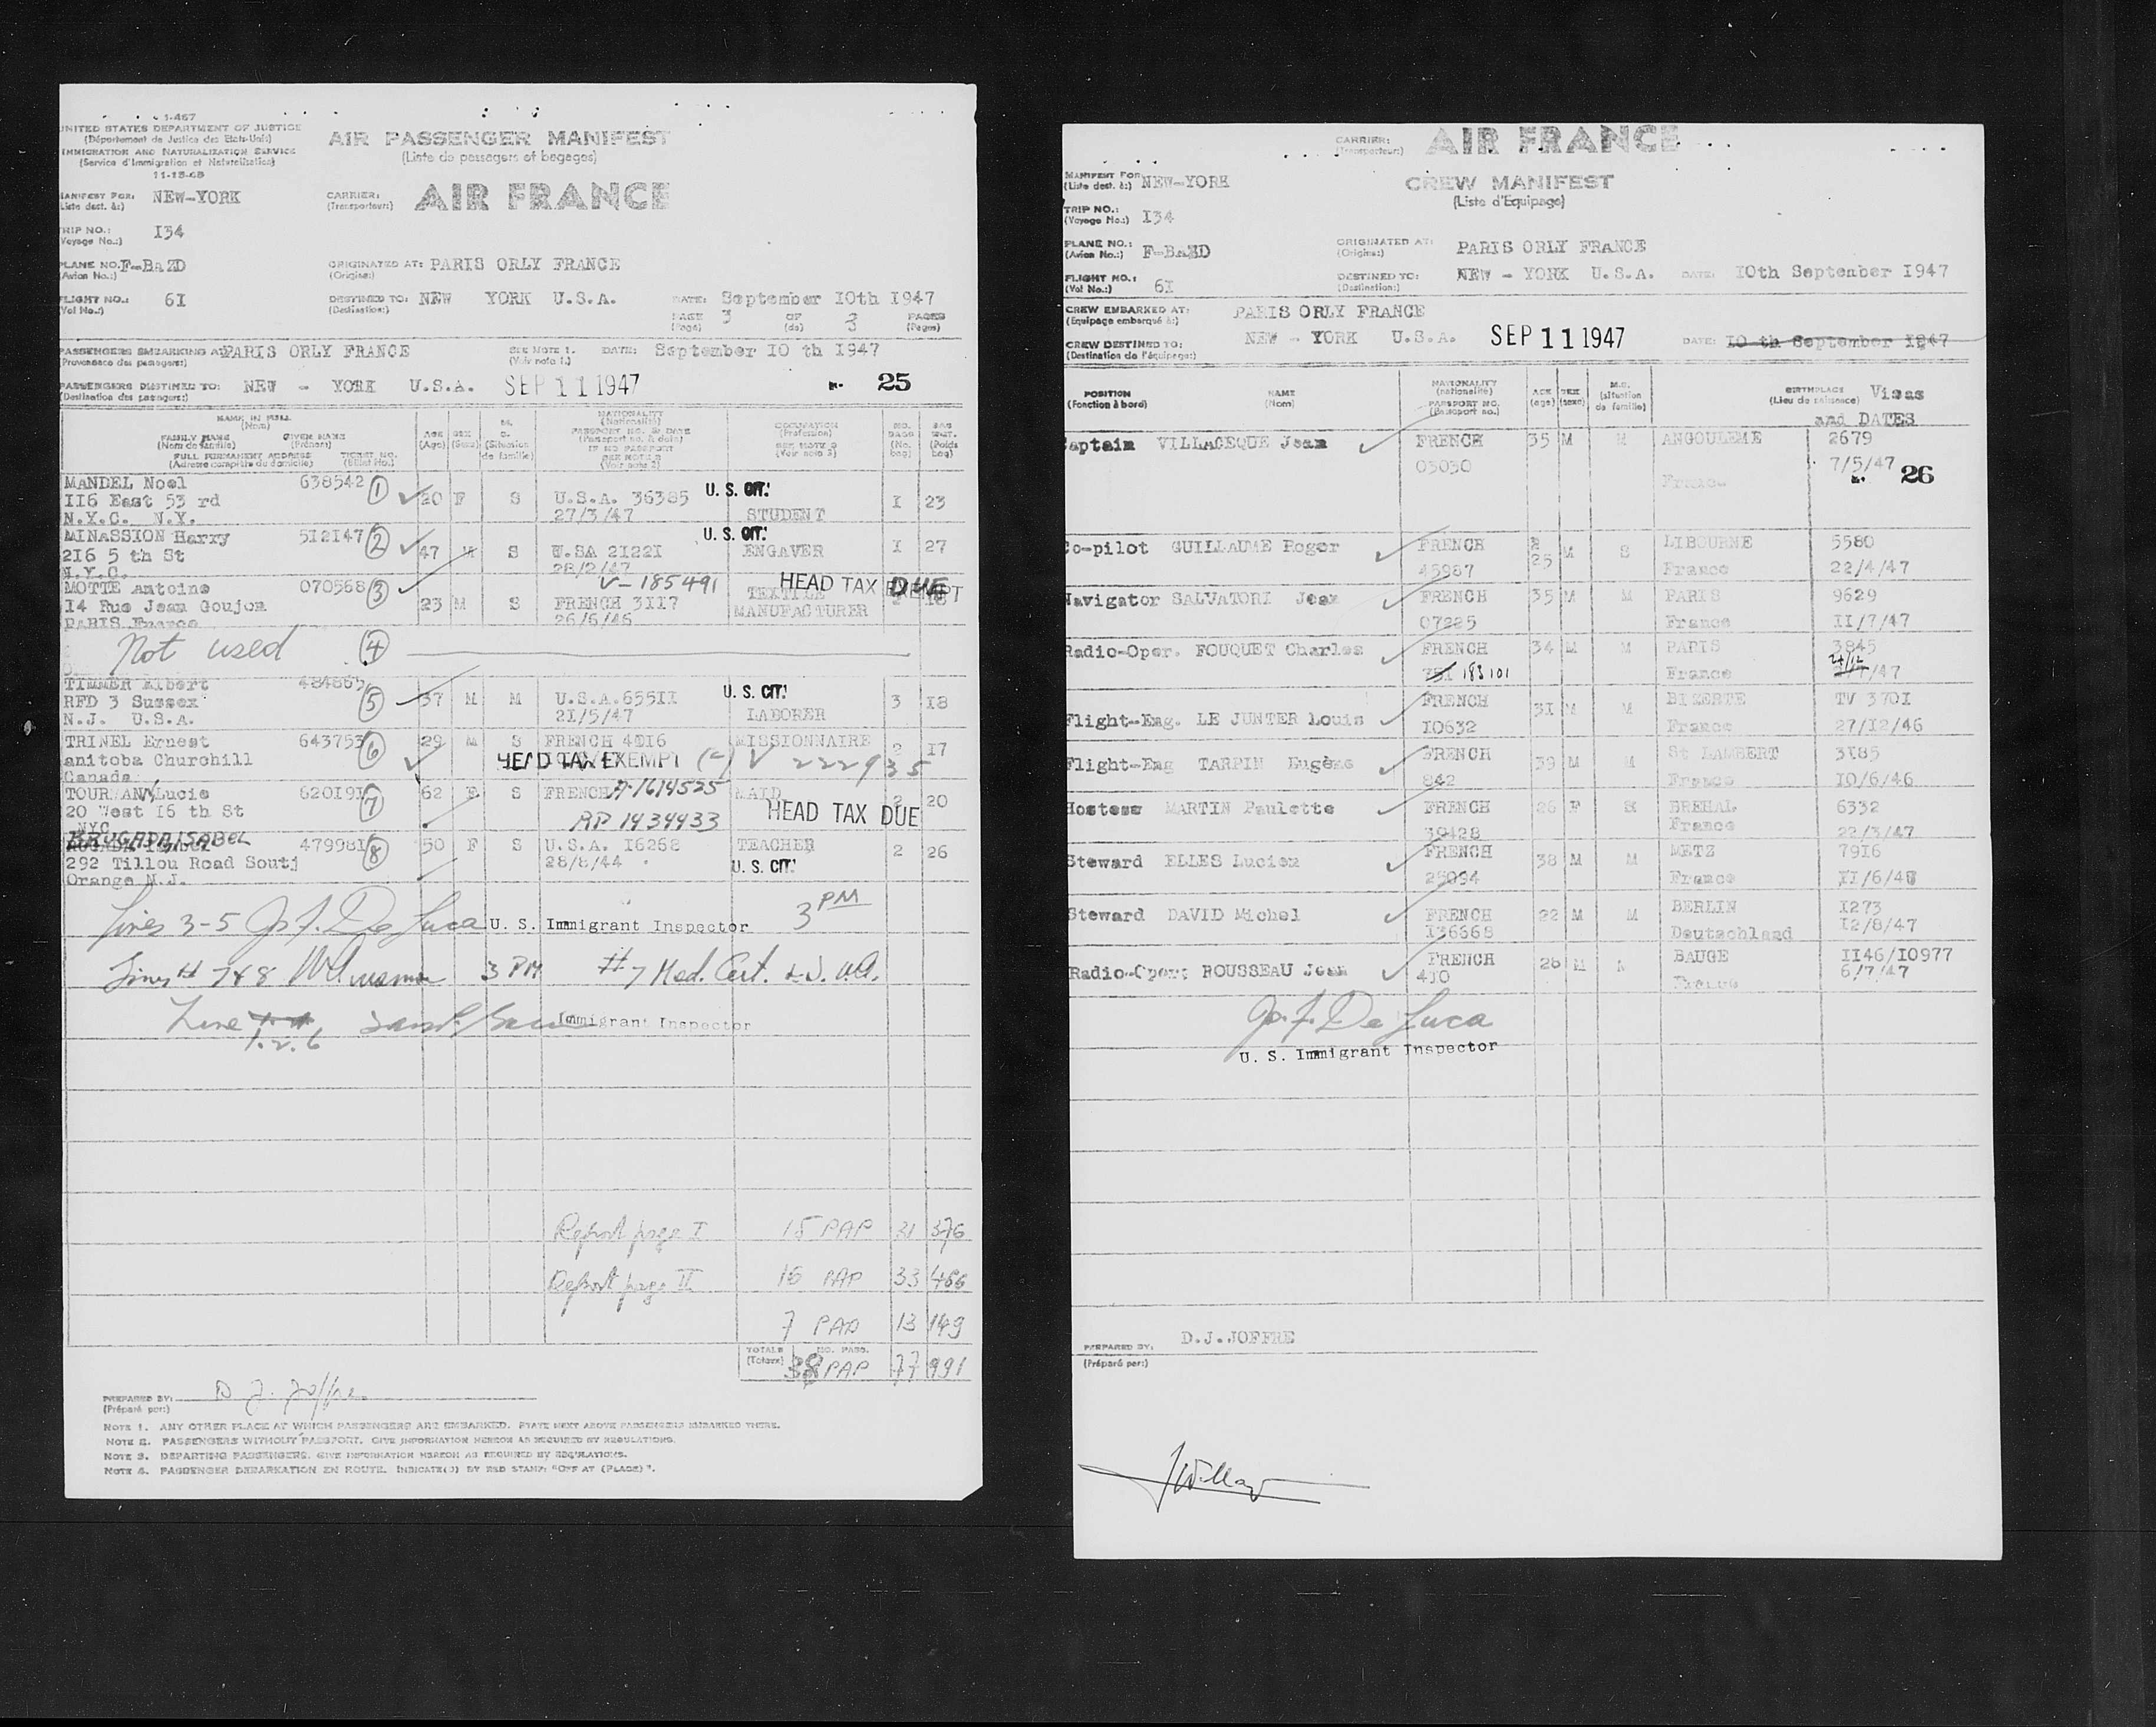 1-467
UNITED STATES DEPARTMENT OF JUSTICE
(Département de Justice des Etats-Unis)
IMMIGRATION AND NATURALIZATION SERVICE
(Service d'Immigration et Naturalisation)
11-13-45
AIR PASSENGER MANIFEST
(Liste de passagers et bagages)
MANIFEST FOR: NEW-YORK
(Liste dest. à:)
CARRIER: AIR FRANCE
(Transporteur:)
TRIP NO.: I34
(Voyage No.:)
PLANE NO. F-BaZD
(Avion No.:)
ORIGINATED AT: PARIS ORLY FRANCE
(Origine:)
FLIGHT NO.: 6I
(Vol No.:)
DESTINED TO: NEW YORK U.S.A. DATE: September IOth I947
(Destination:)
PAGE 3 OF 3 PAGES
(Page) (de) (Pages)
PASSENGERS EMBARKING AT PARIS ORLY FRANCE SEE NOTE 1. DATE: September IO th I947
(Provenance des passagers:) (Voir note 1.)
PASSENGERS DESTINED TO: NEW - YORK U.S.A. SEP 11 1947 25
(Destination des passagers:)
NAME IN FULL
(Nom)
FAMILY NAME GIVEN NAME
(Nom de famille) (Prénom)
FULL PERMANENT ADDRESS TICKET NO.
(Adresse complète du domicile) (Billet No.)
AGE
(Age)
SEX
(Sexe)
M. C.
(Situation de famille)
NATIONALITY
(Nationalité)
PASSPORT NO. & DATE
(Passeport no. & date)
IF NO PASSPORT
SEE NOTE 2
(Voir note 2)
OCCUPATION
(Profession)
SEE NOTE 3
(Voir note 3)
NO. BAGS
(No. bag)
BAG WGT.
(Poids bag)
MANDEL Noel 638542 1 20 F S U.S.A. 36385 U. S. CIT. I 23
II6 East 53 rd 27/3/47 STUDENT
N.Y.C. N.Y.
MINASSION Harry 512147 2 47 M S U.SA 2I22I U. S. CIT. I 27
2I6 5 th St 28/2/47 ENGAVER
N.Y.C.
MOTTE Antoine 070568 3 23 M S FRENCH 3II7 V-185491 HEAD TAX DUE
I4 Rue Jean Goujon 26/6/46 TEXTILE MANUFACTURER
PARIS France
Not used 4
TIMMER Albert 484865 5 37 M M U.S.A. 655II U. S. CIT. 3 I8
RFD 3 Sussex 2I/5/47 LABORER
N.J. U.S.A.
TRINEL Ernest 643753 6 29 M S FRENCH 40I6 MISSIONNAIRE 2 I7
anitoba Churchill HEAD TAX EXEMPT V 222935
Canada
TOURMANY Lucie 62019I 7 62 F S FRENCH A-1614525 MAID 2 20
20 West I5 th St RP 1434933 HEAD TAX DUE
NYC
BRUGADA ISABEL 47998I 8 50 F S U.S.A. I6268 TEACHER 2 26
292 Tillou Road Soutj 28/8/44 U. S. CIT.
Orange N.J.
Lines 3-5 Jos. F. De Luca U. S. Immigrant Inspector 3 PM
Lines # 7&8 3 PM #7 Med. Cert.
Line Immigrant Inspector
1. 2. 6
Report page I 15 PAP 31 376
Report page II 16 PAP 33 466
7 PAP 13 149
TOTALS NO. PASS.
(Totaux) 38 PAP 77 991
PREPARED BY: D J. Joffre
(Préparé par:)
NOTE 1. ANY OTHER PLACE AT WHICH PASSENGERS ARE EMBARKED. STATE NEXT ABOVE PASSENGERS EMBARKED THERE.
NOTE 2. PASSENGERS WITHOUT PASSPORT. GIVE INFORMATION HEREON AS REQUIRED BY REGULATIONS.
NOTE 3. DEPARTING PASSENGERS. GIVE INFORMATION HEREON AS REQUIRED BY REGULATIONS.
NOTE 4. PASSENGER DEBARKATION EN ROUTE. INDICATE(D) BY RED STAMP: "OFF AT (PLACE)".
CARRIER: AIR FRANCE
(Transporteur:)
MANIFEST FOR: NEW-YORK
(Liste dest. à:)
CREW MANIFEST
(Liste d'Equipage)
TRIP NO.: I34
(Voyage No.:)
PLANE NO.: F-BaZD
(Avion No.:)
ORIGINATED AT: PARIS ORLY FRANCE
(Origine:)
FLIGHT NO.: 6I
(Vol No.:)
DESTINED TO: NEW - YORK U.S.A. DATE: IOth September I947
(Destination:)
CREW EMBARKED AT: PARIS ORLY FRANCE
(Equipage embarqué à:)
CREW DESTINED TO: NEW - YORK U.S.A. SEP 11 1947 DATE: IO th September I947
(Destination de l'équipage:)
POSITION
(Fonction à bord)
NAME
(Nom)
NATIONALITY
(nationalité)
PASSPORT NO.
(Passeport no.)
AGE
(age)
SEX
(sexe)
M.C.
(situation de famille)
BIRTHPLACE
(Lieu de naissance)
Visas and DATES
aptain VILLACEQUE Jean FRENCH 35 M M ANGOULEME 2679
03030 France 7/5/47
26
Co-pilot GUILLAUME Roger FRENCH 25 M S LIBOURNE 5580
45987 France 22/4/47
Navigator SALVATORI Jean FRENCH 35 M M PARIS 9629
07225 France II/7/47
Radio-Oper. FOUQUET Charles FRENCH 34 M M PARIS 3845
183101 France 24/12/47
Flight-Eng. LE JUNTER Louis FRENCH 3I M M BIZERTE TV 370I
I0632 France 27/I2/46
Flight-Eng TARPIN Eugène FRENCH 39 M M St LAMBERT 3I85
842 France I0/6/46
Hostess MARTIN Paulette FRENCH 26 F S BREHAL 6332
39428 France 22/3/47
Steward ELLES Lucien FRENCH 38 M M METZ 79I6
25094 France II/6/48
Steward DAVID Michel FRENCH 22 M M BERLIN I273
I36668 Deutschland I2/8/47
Radio-Oper; ROUSSEAU Jean FRENCH 28 M M BAUGE II46/I0977
4I0 France 6/7/47
Jos. F. De Luca
U. S. Immigrant Inspector
PREPARED BY: D.J.JOFFRE
(Préparé par:)